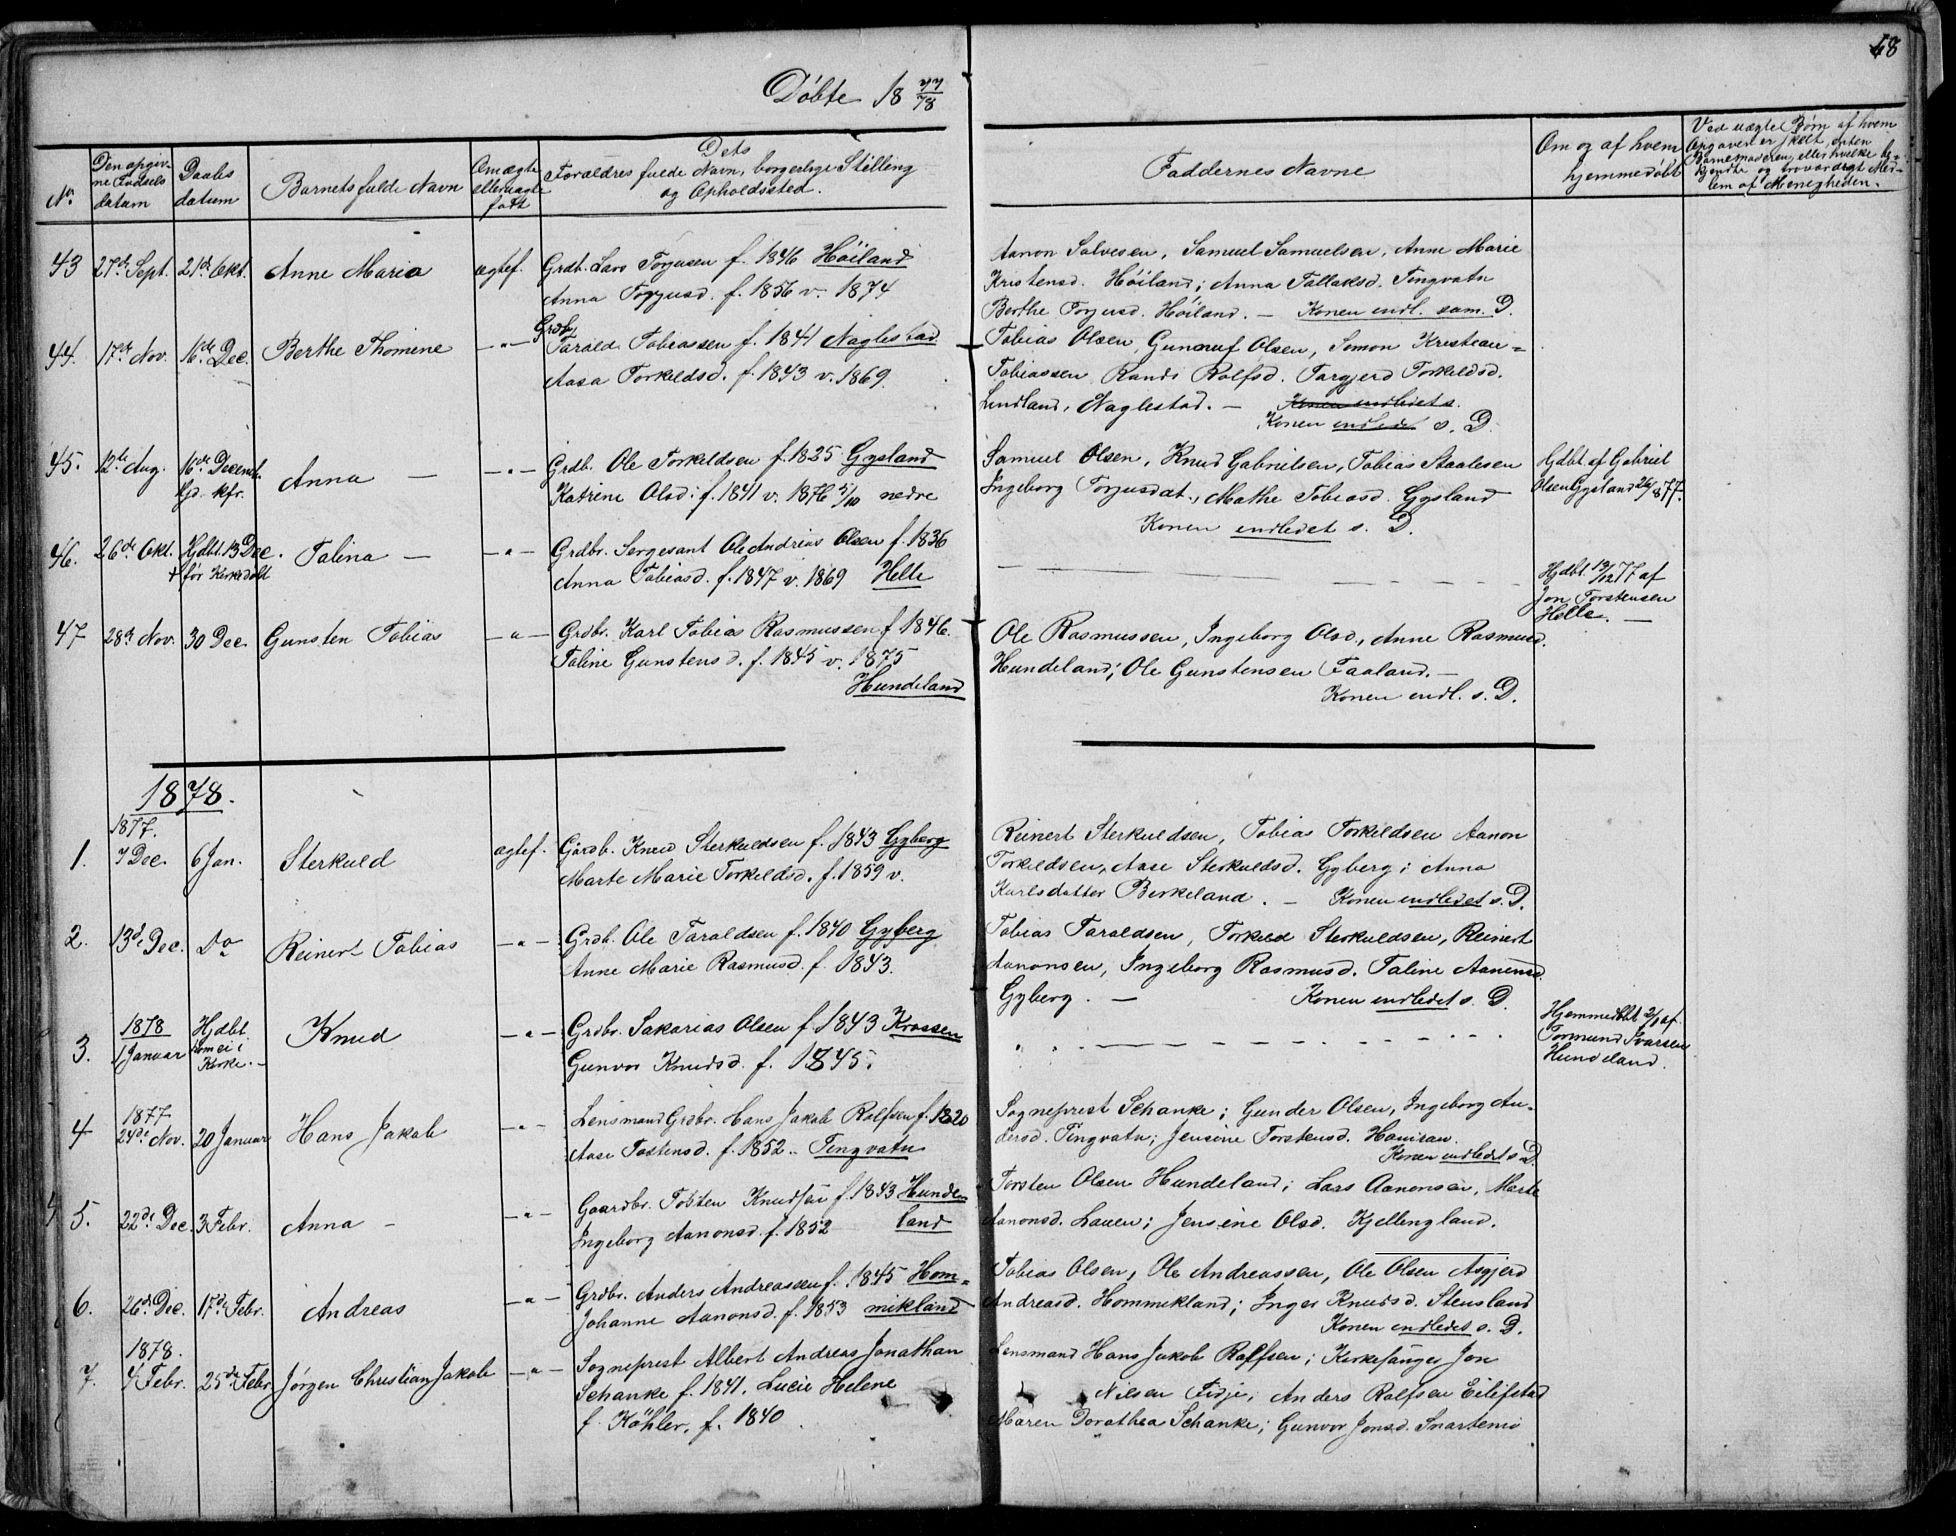 48
Döbte 18 77/78
No.
Den opgiv-
ne Fødsels
datum
Daabs
datum
Barnets fulde Navn
Om ægte
eller uægte
født
Dets
Forældres fulde Navn, borgerlige Stilling
og Opholdssted.
Faddernes Navne
Om og af hvem
hjemmedöbt
Ved uægte Børn af hvem
Opgaven er skeet, enten
Barnemoderen, eller hvilke be-
kjendte og troværdigt Med-
lem af Menigheden.
43 27de Sept. 21de Okt. Anne Maria ægtef. Grdb. Lars Torjusen f. 1846 Höiland
Anna Torjusd. f. 1856 v. 1874
Aanon Salvesen, Samuel Samuelsen, Anne Marie
Kristensd. Höiland; Anna Tallaksd. Tingvatn
Berthe Torjusd. Höiland. — Konen indl. sam. D.
44. 17de Nov. 16de Dec. Berthe Thomine —"— Grdb. Tarald Tobiassen f. 1841 Naglestad
Aasa Torkeldsd. f. 1843 v. 1869.
Tobias Olsen, Gunnuf Olsen, Somon Kristian=
Tobiassen Randi Rolfsd. Targjerd Torkeldsd.
Lindland, Naglestad. — Konen indledet s.
Konen indledet s. D.
45. 12te Aug. 16de Decemb. Anna — —"— Grdb. Ole Torkeldsen f. 1825 Gysland
Kjd. kfr. Katrine Olsd. f. 1841 v. 1876 5/10 nedre
Samuel Olsen, Knud Gabrielsen, Tobias Staalesen
Ingeborg Torjusdat., Mathe Tobiasd. Gysland
Konen indledet s. D.
Hjdbt. af Gabriel
Olsen Gysland 26/8 77.
46. 26de Okt. Hjdbt. 13 Dec. Talina — —"— Grdbr. Sergesant Ole Andreas Olsen f. 1836
+ før Kirkedåbt Anna Tobiasd. f. 1847 v. 1869 Helle
Hjdbt. 13/12 77 af
Jon Torstensen
Helle. —
47 28de Nov. 30 Dec. Gunsten Tobias —"— Grdbr. Karl Tobias Rasmussen f 1846.
Taline Gunstensd. f. 1845 v. 1875
Hundeland
Ole Rasmussen, Ingeborg Olsd., Anne Rasmusd.
Hundeland; Ole Gunstensen Faaland. —
Konen indl. s. D.
1878.
1877.
1. 7 Dec. 6 Jan. Sterkuld ægtef. Gårdb. Knud Sterkuldsen f. 1843 Gyberg
Marte Marie Torkeldsd. f. 1859 v.
Reinert Sterkuldsen, Tobias Torkildsen Aanon
Torkildsen, Aase Sterkuldsd. Gyberg; Anna
Karlsdatter Birkeland. — Konen indledet s. D.
2. 13de Dec. Do Reinert Tobias —"— Grdb. Ole Taraldsen f. 1840 Gyberg
Anne Marie Rasmusd. f. 1843.
Tobias Taraldsen, Torkild Sterkuldsen, Reinert
Aanonsen, Ingeborg Rasmusd. Taline Aanensd.
Gyberg. — Konen indledet s. D.
1878
3. 1 Januar Hjdbt. Knud —"— Grdbr. Sakarias Olsen f. 1843 Krossen
kom ei i
Kirke. — Gunvor Knudsd. f. 1845.
Hjemmedöbt 2/1 af
Tormund Ivarsen
Hundeland.
1877
4 24de Nov. 20 Januar Hans Jakob —"— Lensmand Grdbr. Hans Jakob Rolfsen f. 1820
Aase Tostensd. f. 1852. Tingvatn
Sogneprest Schanke; Gunder Olsen, Ingeborg An-
dersd. Tingvatn; Jensine Torstensd.
Konen indledet s D.
5. 22de Dec. 3 Febr. Anna — —"— Gaardbr. Tosten Knudsen f. 1843 Hunde
Ingeborg Aanonsd. f. 1852 land
Torsten Olsen Hundeland; Lars Aanonsen, Marte
Aanonsd. Lauen; Jensine Olsd. Kjellingland.
6. 26de Dec. 17de Febr. Andreas —"— Grdbr. Anders Andreassen f. 1845 Hom=
Johanne Aanonsd. f. 1853 mikland
Tobias Olsen, Ole Andreassen, Ole Olsen Asgjerd
Andreasd. Hommikland; Inger Knudsd. Stensland
Konen indledet s. D.
1878.
7. 4 Febr. 25de Febr. Jörgen Christian Jakob —"— Sogneprest Albert Andreas Jonathan
Schanke f. 1841. Lucie Helene
f. Köhler, f. 1840.
Lensmand Hans Jakob Rolfsen; Kirkesanger Jon
Nilsen Fidje; Anders Rolfsen Eilifstad
Maren Dorathea Schanke; Gunvor Jonsd. Snartemo